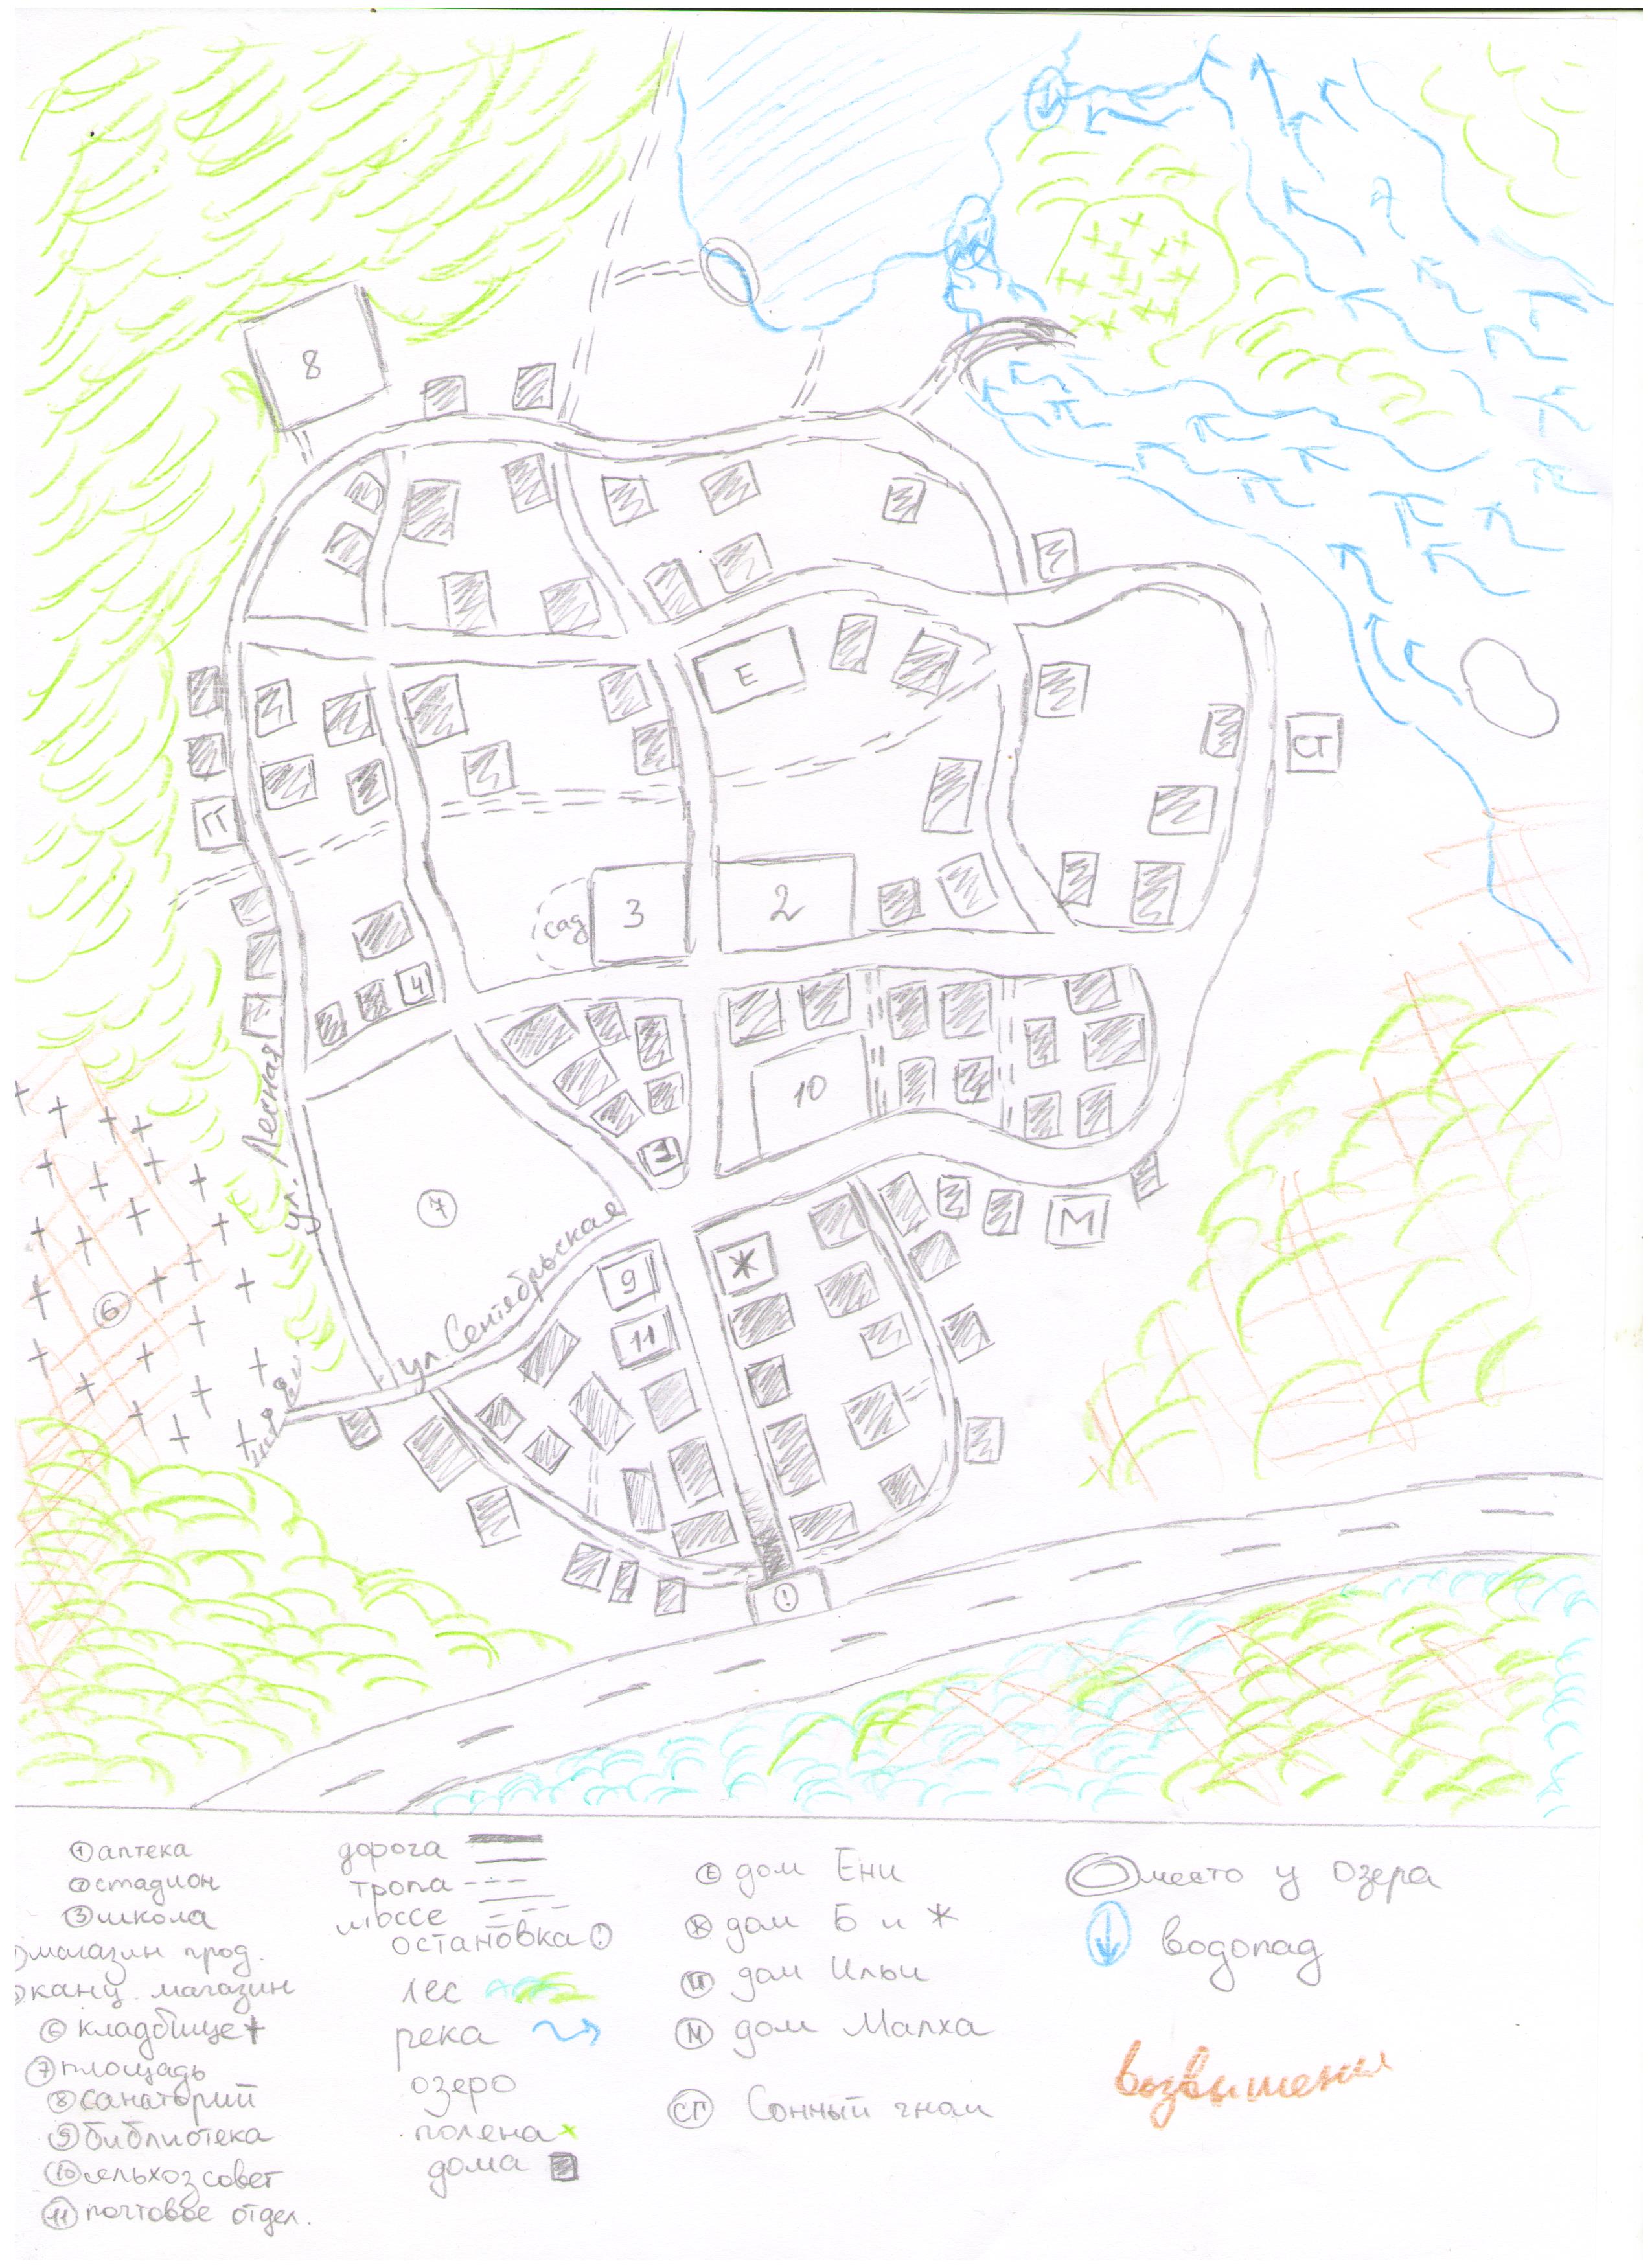 8
Е
СГ
П
сад
3
2
4
10
1
ул. Лесная
7
М
ул. Сентябрьская
9
Ж
6
11
!
① аптека
② стадион
③ школа
магазин прод.
канц. магазин
⑥ кладбище
⑦ площадь
⑧ санаторий
⑨ библиотека
⑩ сельхозсовет
⑪ почтовое отдел.
дорога
тропа
шоссе
остановка !
лес
река
озеро
поляна
дома
Е дом Ени
Ж дом Б и Ж
дом Ильи
М дом Малха
СГ Сонный гном
место у озера
водопад
возвышения